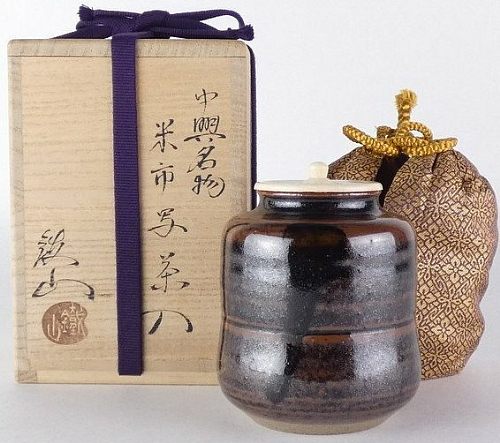 中興名物
米市写茶入
鉄山